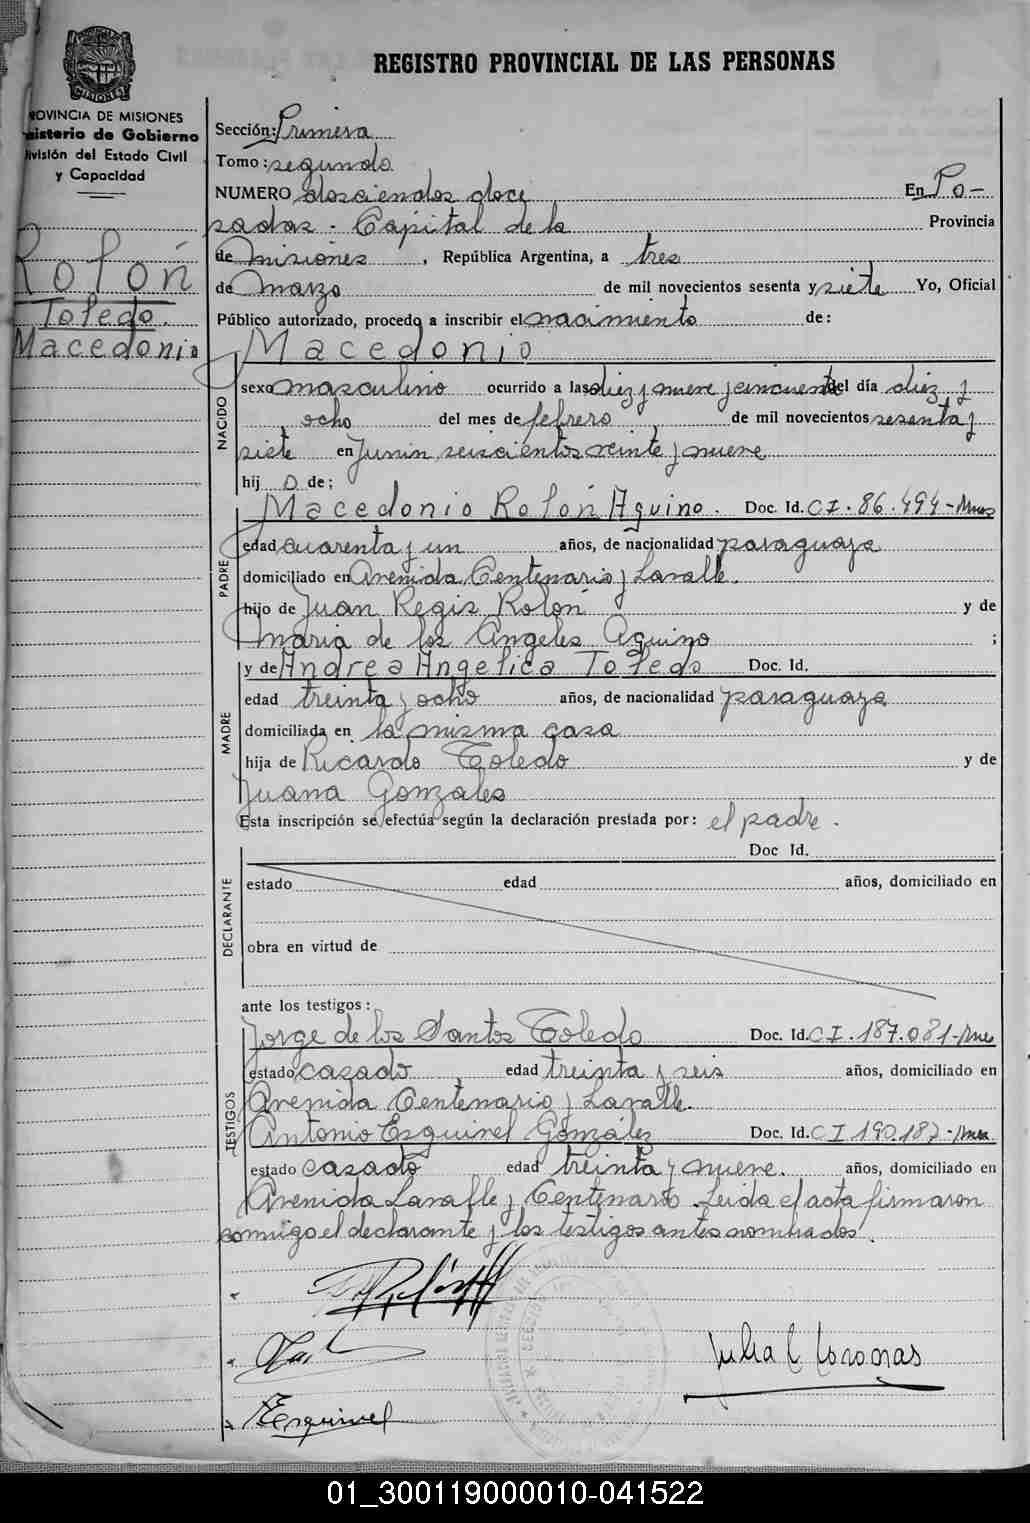 REGISTRO PROVINCIAL DE LAS PERSONAS
MISIONES
PROVINCIA DE MISIONES
Ministerio de Gobierno
División del Estado Civil
y Capacidad
Rolón
Toledo.
Macedonio
Sección: Primera
Tomo: segundo
NUMERO doscientos doce En Po-
sadas - Capital de la Provincia
de Misiones, República Argentina, a tres
de Marzo de mil novecientos sesenta y siete Yo, Oficial
Público autorizado, procedo a inscribir el nacimiento de:
Macedonio
NACIDO
sexo masculino ocurrido a las diez y nueve y cincuenta del día diez y
ocho del mes de febrero de mil novecientos sesenta y
siete en Junin seiscientos veinte y nueve
hij o de;
PADRE
Macedonio Rolón Aquino. Doc. Id. CI. 86.494-Mnes
edad cuarenta y un años, de nacionalidad paraguaya
domiciliado en Avenida Centenario y Lavalle.
hijo de Juan Regis Rolón y de
Maria de los Angeles Aquino ;
y de Andrea Angelica Toledo Doc. Id.
MADRE
edad treinta y ocho años, de nacionalidad paraguaya
domiciliada en la misma casa
hija de Ricardo Toledo y de
Juana Gonzales
Esta inscripción se efectúa según la declaración prestada por: el padre.
DECLARANTE
Doc Id.
estado edad años, domiciliado en
obra en virtud de
ante los testigos:
TESTIGOS
Jorge de los Santos Toledo Doc. Id. CI. 187.081-Mnes
estado casado edad treinta y seis años, domiciliado en
Avenida Centenario y Lavalle.
Antonio Esquivel Gonzáles Doc. Id. CI 190.187-Mnes
estado casado edad treinta y nueve. años, domiciliado en
Avenida Lavalle y Centenario. Leida el acta firmaron
conmigo el declarante y los testigos antes nombrados.
Julia C Coronas
Esquivel
01_300119000010-041522